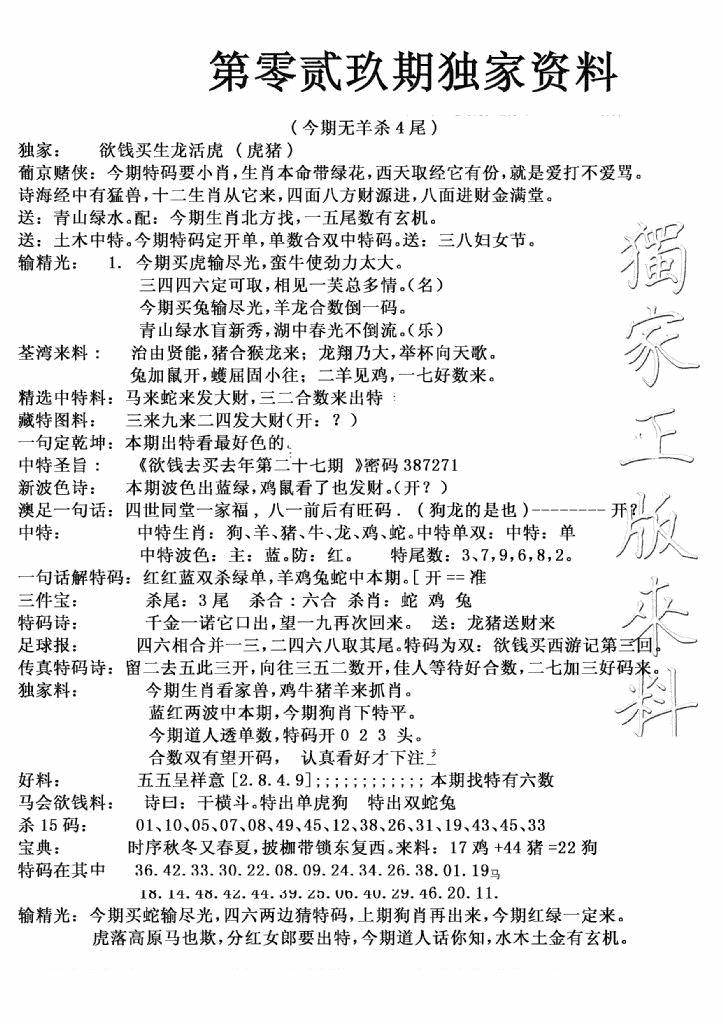 第零贰玖期独家资料
(今期无羊杀4尾)
独家： 欲钱买生龙活虎 (虎猪)
葡京赌侠：今期特码要小肖,生肖本命带绿花,西天取经它有份,就是爱打不爱骂。
诗海经中有猛兽,十二生肖从它来,四面八方财源进,八面进财金满堂。
送：青山绿水。配：今期生肖北方找,一五尾数有玄机。
送：土木中特。今期特码定开单,单数合双中特码。送：三八妇女节。
输精光： 1. 今期买虎输尽光,蛮牛使劲力太大。
三四四六定可取,相见一芙总多情。(名)
今期买兔输尽光,羊龙合数倒一码。
青山绿水盲新秀,湖中春光不倒流。(乐)
荃湾来料： 治由贤能,猪合猴龙来；龙翔乃大,举杯向天歌。
兔加鼠开,蠖屈固小往；二羊见鸡,一七好数来。
精选中特料：马来蛇来发大财,三二合数来出特
藏特图料： 三来九来二四发大财(开：?)
一句定乾坤：本期出特看最好色的
中特圣旨： 《欲钱去买去年第二十七期 》密码387271
新波色诗： 本期波色出蓝绿,鸡鼠看了也发财。(开?)
澳足一句话：四世同堂一家福，八一前后有旺码．(狗龙的是也)--------开?
中特： 中特生肖：狗、羊、猪、牛、龙、鸡、蛇。中特单双：中特：单
中特波色：主：蓝。防：红。 特尾数：3、7,9,6,8,2。
一句话解特码：红红蓝双杀绿单,羊鸡兔蛇中本期。[开==准
三件宝： 杀尾：3尾 杀合：六合 杀肖：蛇 鸡 兔
特码诗： 千金一诺它口出,望一九再次回来。 送：龙猪送财来
足球报： 四六相合并一三,二四六八取其尾。特码为双：欲钱买西游记第三回。
传真特码诗：留二去五此三开,向往三五二数开,佳人等待好合数,二七加三好码来。
独家料： 今期生肖看家兽,鸡牛猪羊来抓肖。
蓝红两波中本期,今期狗肖下特平。
今期道人透单数,特码开0 2 3 头。
合数双有望开码， 认真看好才下注
好料： 五五呈祥意[2.8.4.9];;;;;;;;;;;;本期找特有六数
马会欲钱料： 诗曰：干横斗。特出单虎狗 特出双蛇兔
杀15码： 01、10、05、07、08、49、45、12、38、26、31、19、43、45、33
宝典： 时序秋冬又春夏,披枷带锁东复西。来料：17鸡+44猪=22狗
特码在其中 36.42.33.30.22.08.09.24.34.26.38.01.19马
18.14.48.42.44.39.25.06.40.29.46.20.11.
输精光：今期买蛇输尽光,四六两边猜特码,上期狗肖再出来,今期红绿一定来。
虎落高原马也欺,分红女郎要出特,今期道人话你知,水木土金有玄机。
獨家正版來料